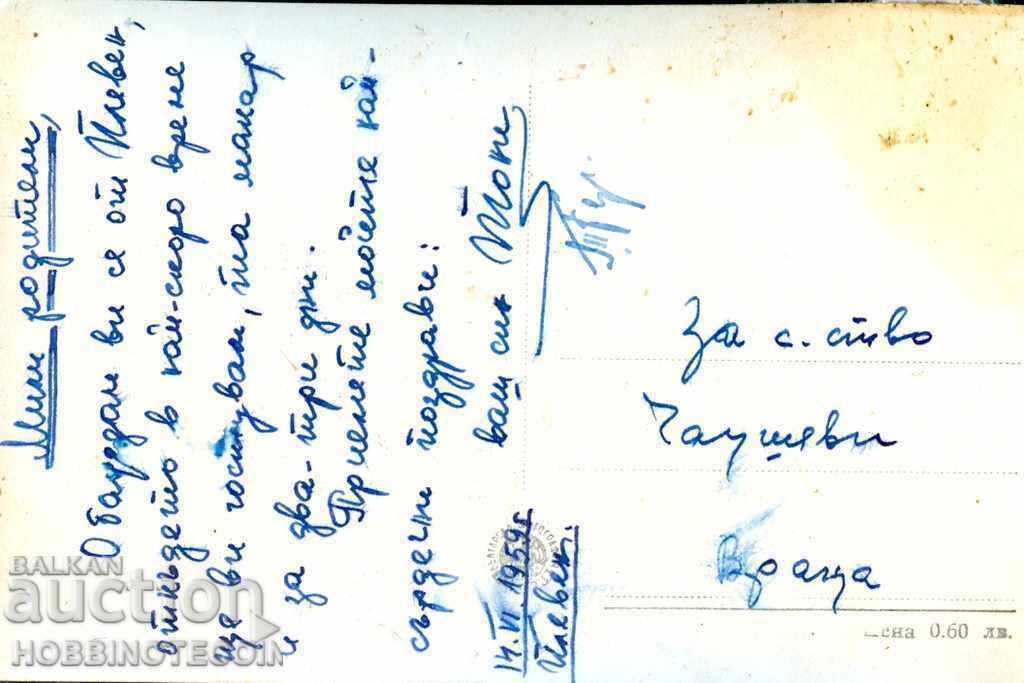 Мили родители,
Обаждам ви се от Плевен,
откъдето в най-скоро време
ще ви гостувам, па макар
и за два-три дни.
Приемете моите най-
сърдечни поздрави:
ваш син Тони
14.VI 1959 г.
Плевен.
За с. ство
Чаушеви
Враца
Цена 0.60 лв.
BALKAN
auction
HOBBINOTECOIN